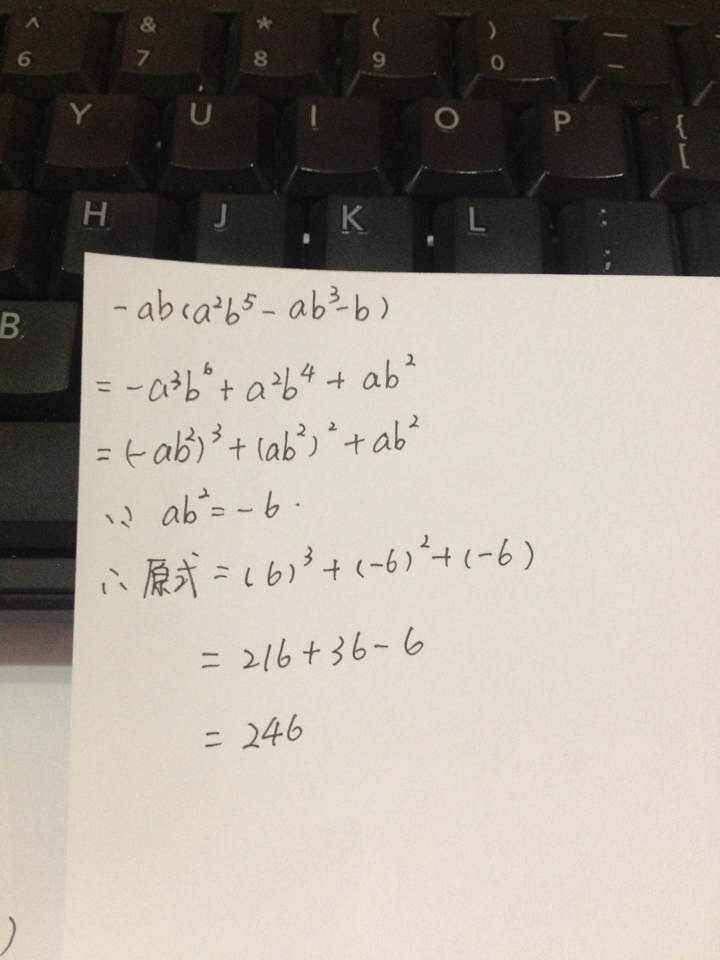 ^ & * ( ) —
6 7 8 9 0 –
Y U I O P {
[
H J K L :
;
B
-ab(a²b⁵-ab³-b)
=-a³b⁶+a²b⁴+ab²
=(-ab²)³+(ab²)²+ab²
∵ ab²=-6.
∴原式=(6)³+(-6)²+(-6)
=216+36-6
=246
)